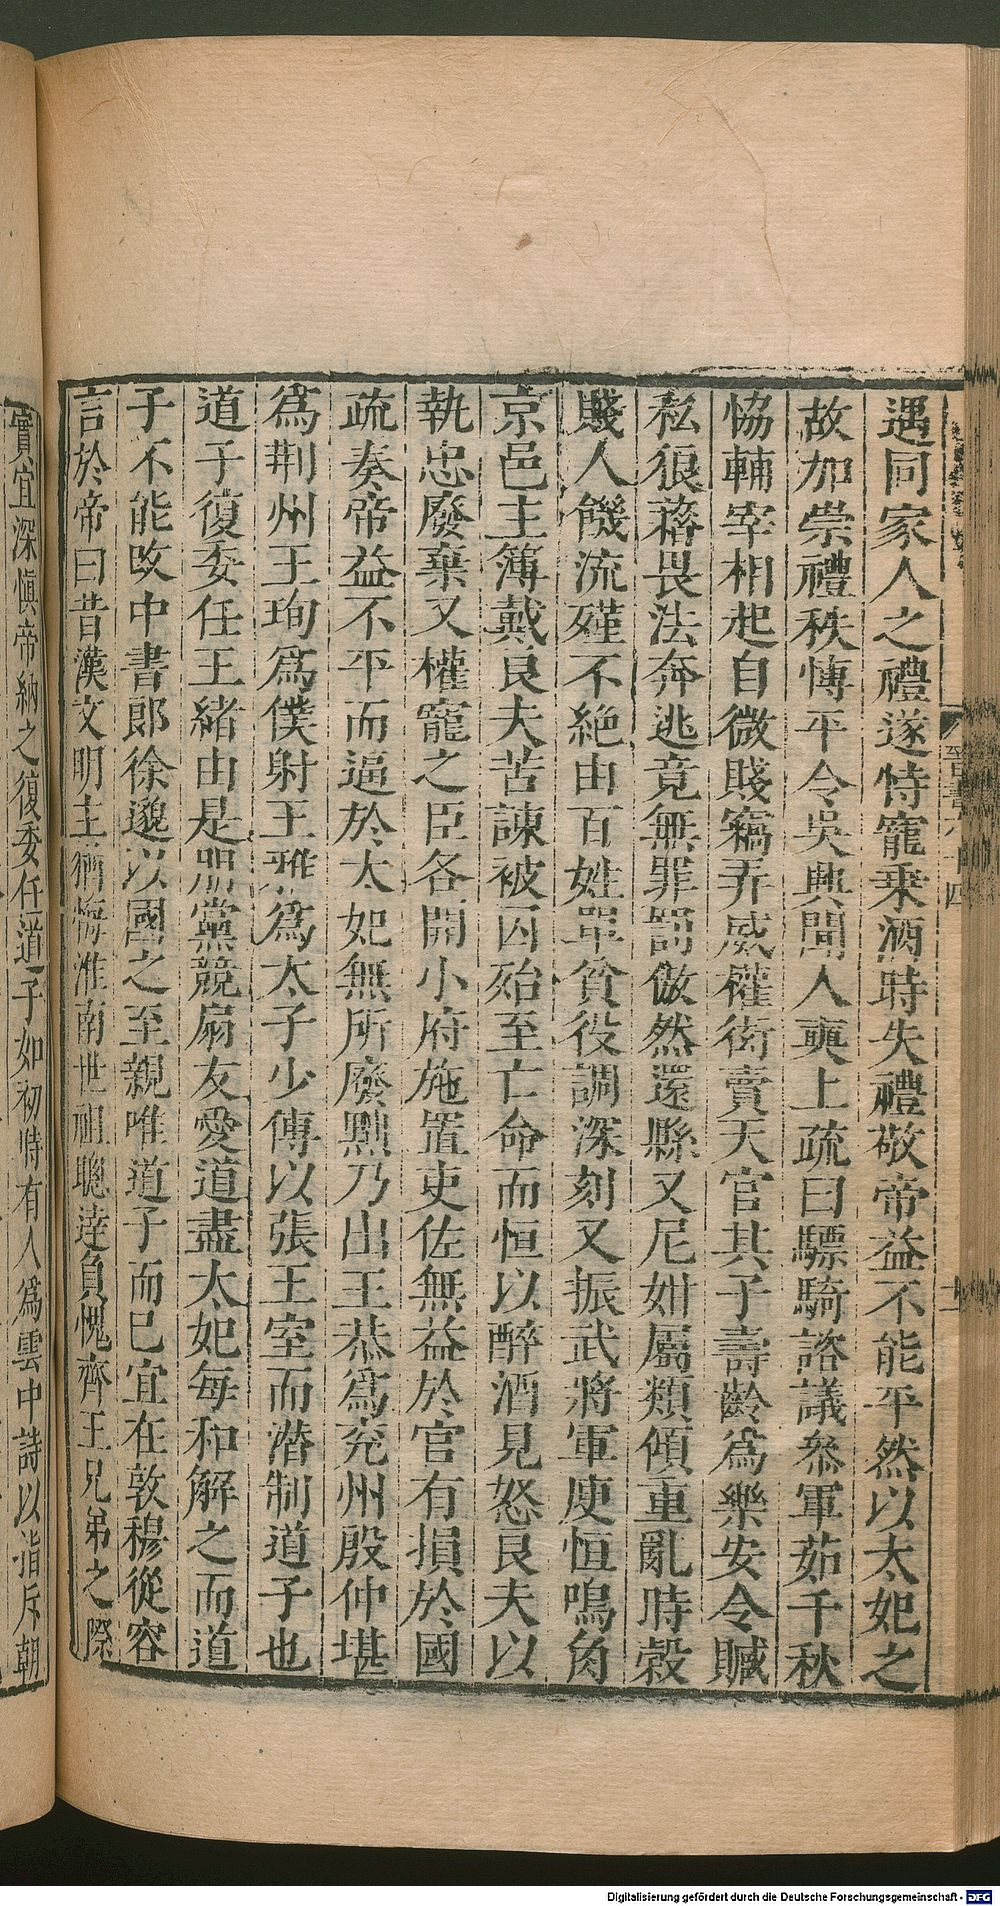 遇同家人之禮遂恃寵乘酒時失禮敬帝益不能平然以太妃之
故加崇禮秩博平令吳興聞人奭上疏曰驃騎諮議叅軍茹千秋
恊輔宰相起自微賤竊弄威權衒賣天官其子壽齡爲樂安令贓
私狼藉畏法奔逃竟無罪罰傲然還縣又尼姏屬類傾動亂時穀
賤人饑流殣不絶由百姓單貧役調深刻又振武將軍庾恒鳴角
京邑主簿戴良夫苦諫被囚殆至亡命而恒以醉酒見怒良夫以
執忠廢棄又權寵之臣各開小府施置吏佐無益於官有損於國
疏奏帝益不平而逼於太妃無所廢黜乃出王恭爲兖州殷仲堪
爲荆州王珣爲僕射王雅爲太子少傅以張王室而潜制道子也
道子復委任王緒由是朋黨競扇友愛道盡太妃每和解之而道
子不能改中書郎徐邈以國之至親唯道子而已宜在敦穆從容
言於帝曰昔漢文明主猶悔淮南世祖聰達負愧齊王兄弟之際
實宜深慎帝納之復委任道子如初時有人爲雲中詩以指斥朝
晉書六十四
Digitalisierung gefördert durch die Deutsche Forschungsgemeinschaft - DFG